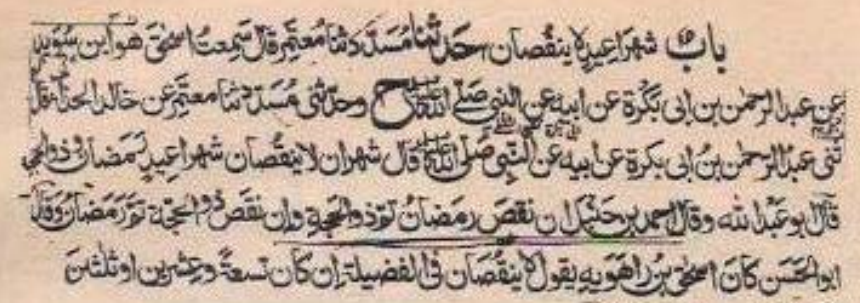 باب شهرا عيد لا ينقصان حدثنا مسدد ثنا معتمر قال سمعت اسحٰق هو ابن سويد
عن عبد الرحمٰن بن ابى بكرة عن ابيه عن النبي صلى الله عليه وسلم ح وحدثنى مسدد ثنا معتمر عن خالد الحذاء قال
ثنى عبد الرحمٰن بن ابى بكرة عن ابيه عن النبي صلى الله عليه وسلم قال شهران لا ينقصان شهرا عيد رمضان و ذوالحجة
قال ابو عبد الله وقال احمد بن حنبل ان نقص رمضان تم ذوالحجة وان نقص ذوالحجة تم رمضان وقال
ابو الحسن كان اسحٰق بن راهويه يقول لا ينقصان فى الفضيلة ان كان تسعة وعشرين او ثلثين